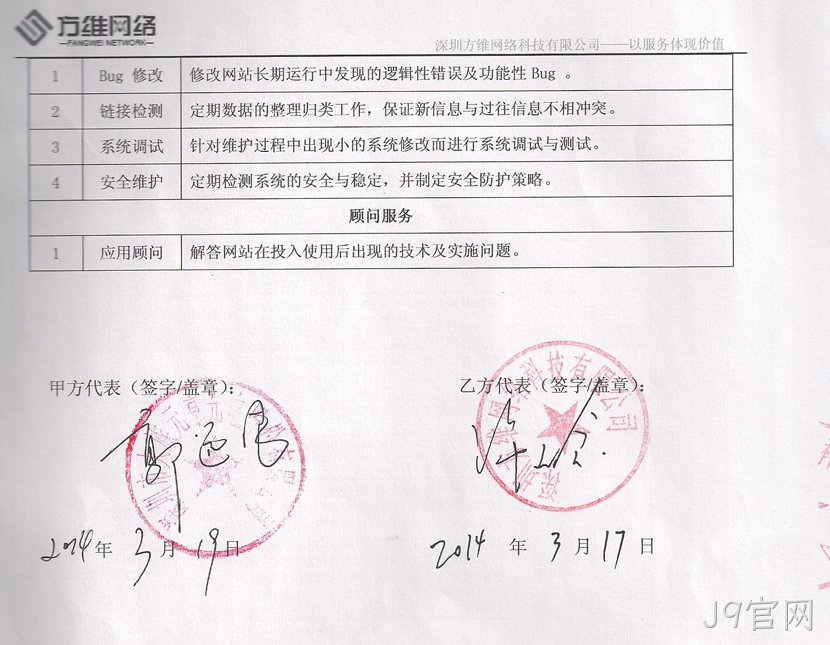 方维网络
FANGWEI NETWORK
深圳方维网络科技有限公司——以服务体现价值
1 Bug 修改 修改网站长期运行中发现的逻辑性错误及功能性 Bug 。
2 链接检测 定期数据的整理归类工作，保证新信息与过往信息不相冲突。
3 系统调试 针对维护过程中出现小的系统修改而进行系统调试与测试。
4 安全维护 定期检测系统的安全与稳定，并制定安全防护策略。
顾问服务
1 应用顾问 解答网站在投入使用后出现的技术及实施问题。
甲方代表（签字/盖章）： 乙方代表（签字/盖章）：
深圳方维网络科技有限公司
2014 年 3 月 19 日 2014 年 3 月 17 日
J9官网